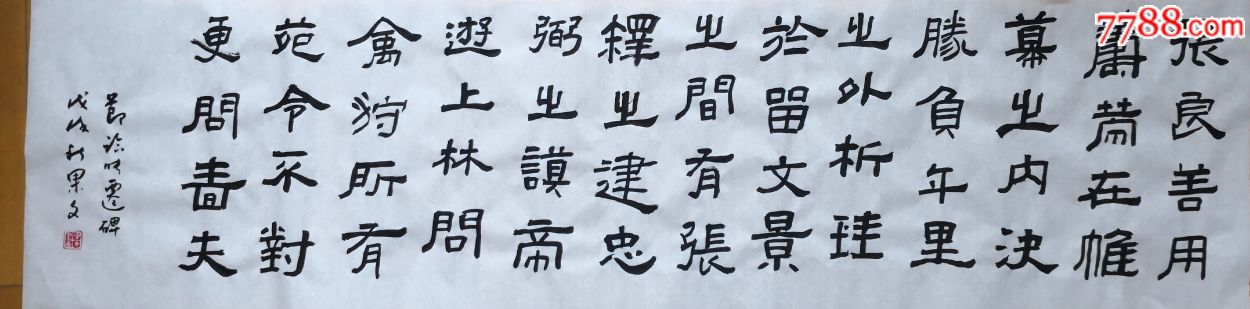 張良善用
籌策在帷
幕之內決
勝負千里
之外析珪
於留文景
之間有張
釋之建忠
弼之謨帝
遊上林問
禽狩所有
苑令不對
更問嗇夫
節臨張遷碑
戊戌秋果文
7788.com